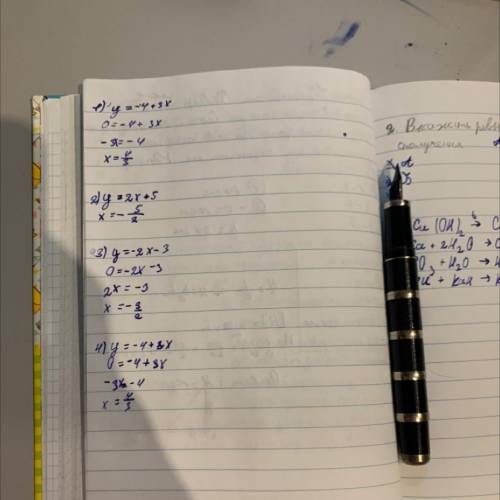 1) y = -4+3x
0 = -4+3x
-3x = -4
x = 4/3
2) y = 2x+5
x = - 5/2
3) y = -2x-3
0 = -2x-3
2x = -3
x = - 3/2
4) y = -4+3x
0 = -4+3x
-3x = -4
x = 4/3
2. Вкажіть
сполучення
А
Б
(OH)₂ →
+ 2H₂O →
+ H₂O →